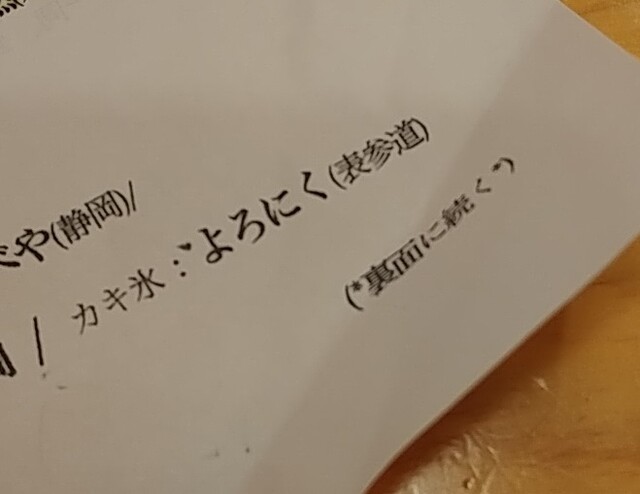 や(静岡)/
/ カキ氷：よろにく(表参道)
(*裏面に続く*)